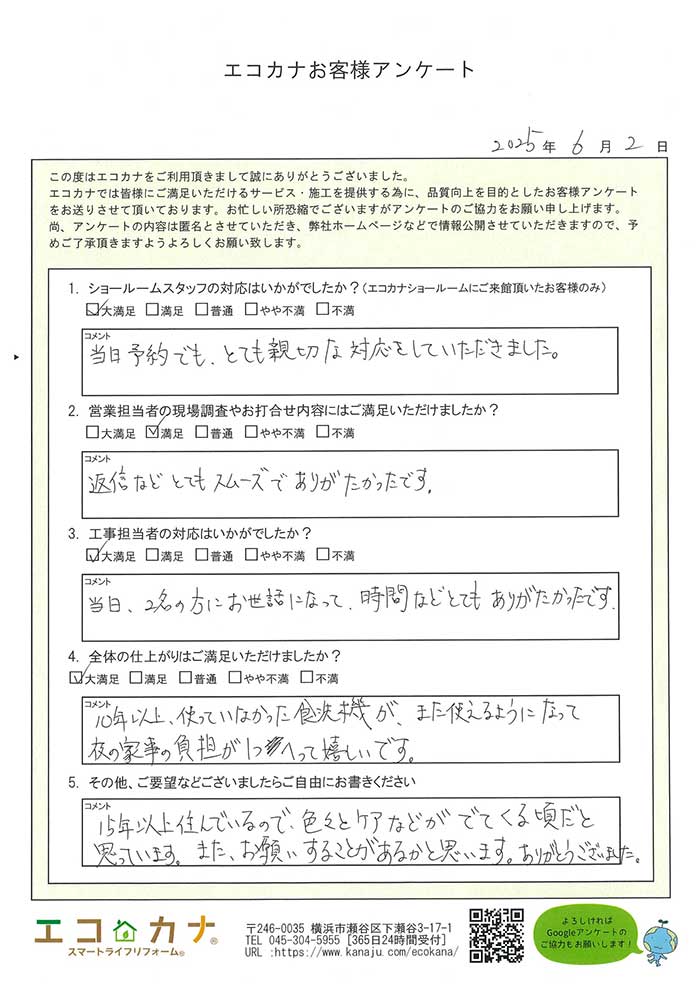 エコカナお客様アンケート
2025年 6月 2日
この度はエコカナをご利用頂きまして誠にありがとうございました。
エコカナでは皆様にご満足いただけるサービス・施工を提供する為に、品質向上を目的としたお客様アンケート
をお送りさせて頂いております。お忙しい所恐縮でございますがアンケートのご協力をお願い申し上げます。
尚、アンケートの内容は匿名とさせていただき、弊社ホームページなどで情報公開させていただきますので、予
めご了承頂きますようよろしくお願い致します。
1. ショールームスタッフの対応はいかがでしたか？(エコカナショールームにご来館頂いたお客様のみ)
☑大満足 □満足 □普通 □やや不満 □不満
コメント
当日予約でも、とても親切な対応をしていただきました。
2. 営業担当者の現場調査やお打合せ内容にはご満足いただけましたか？
□大満足 ☑満足 □普通 □やや不満 □不満
コメント
返信などとてもスムーズでありがたかったです。
3. 工事担当者の対応はいかがでしたか？
☑大満足 □満足 □普通 □やや不満 □不満
コメント
当日、2名の方にお世話になって、時間などとてもありがたかったです。
4. 全体の仕上がりはご満足いただけましたか？
☑大満足 □満足 □普通 □やや不満 □不満
コメント
10年以上、使っていなかった食洗機が、また使えるようになって
夜の家事の負担が1つへって嬉しいです。
5. その他、ご要望などございましたらご自由にお書きください
コメント
15年以上住んでいるので、色々とケアなどがでてくる頃だと
思っています。また、お願いすることがあるかと思います。ありがとうございました。
エコカナ®
スマートライフリフォーム®
〒246-0035 横浜市瀬谷区下瀬谷3-17-1
TEL 045-304-5955 [365日24時間受付]
URL :https://www.kanaju.com/ecokana/
よろしければ
Googleアンケートの
ご協力もお願いします！